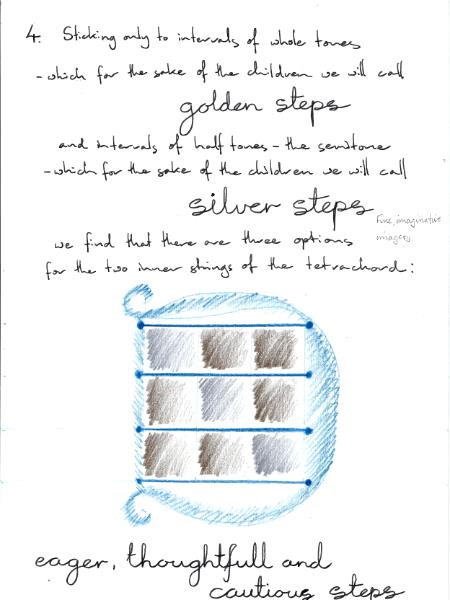 4. Sticking only to intervals of whole tones
- which for the sake of the children we will call
golden steps
and intervals of half tones - the semitone
- which for the sake of the children we will call
silver steps
Fine, imaginative
imagery
we find that there are three options
for the two inner strings of the tetrachord:
eager, thoughtfull and
cautious steps